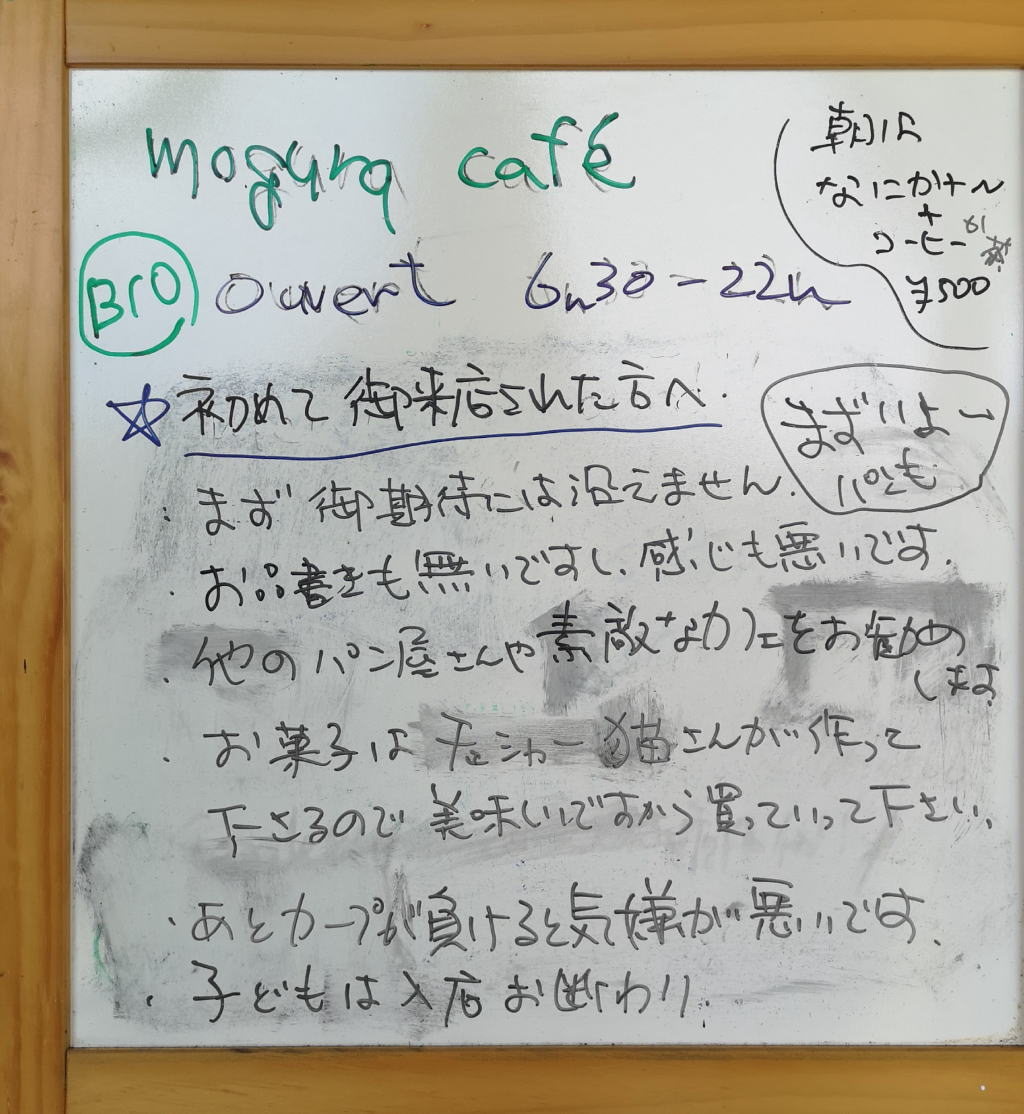 mogura café
朝は
なにかけ〜
+
コーヒー
¥500
Bro
Ouvert 6h30-22h
☆初めて御来店された方へ.
まずいよー
パンも
・まず御期待には沿えません.
・お品書きも無いですし、感じも悪いです.
・他のパン屋さんや素敵なカフェをお勧め
します
・お菓子はチェシャー猫さんが作って
下さるので美味しいですから買っていって下さい、
・あとカープが負けると気嫌が悪いです、
・子どもは入店お断わり.